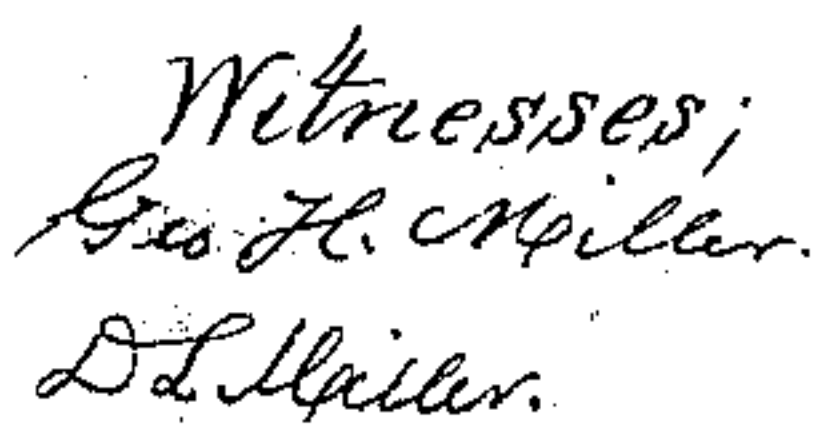 Witnesses;
Geo H. Miller.
D L Miller.